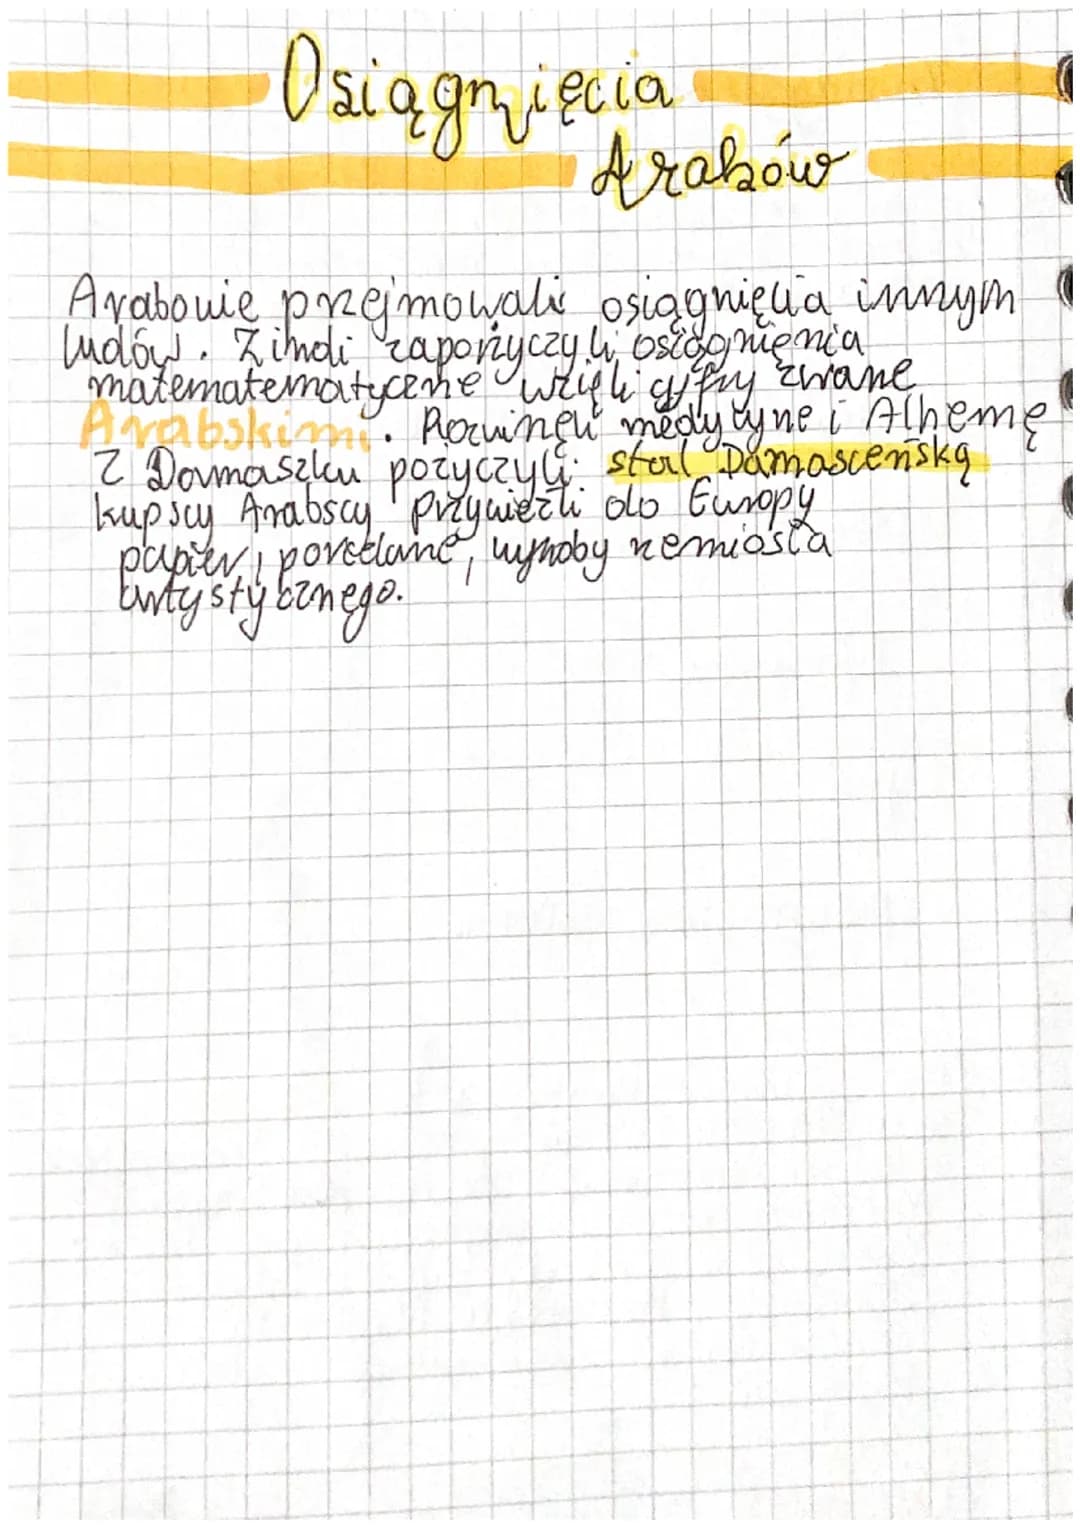 Osiągnięcia
Arabów
Arabowie przejmowali osiągnięcia innym
ludów. Z indi zapożyczyli osiągnięnia
matematematyczne wzięli cyfry zwane
Arabskimi. Rozwinęli medycyne i Alhemę
Z Damaszku pożyczyli: stal Damasceńską
kupscy Arabscy przywieźli do Europy
papier, porcelanę, wyroby rzemiosła
artystycznego.